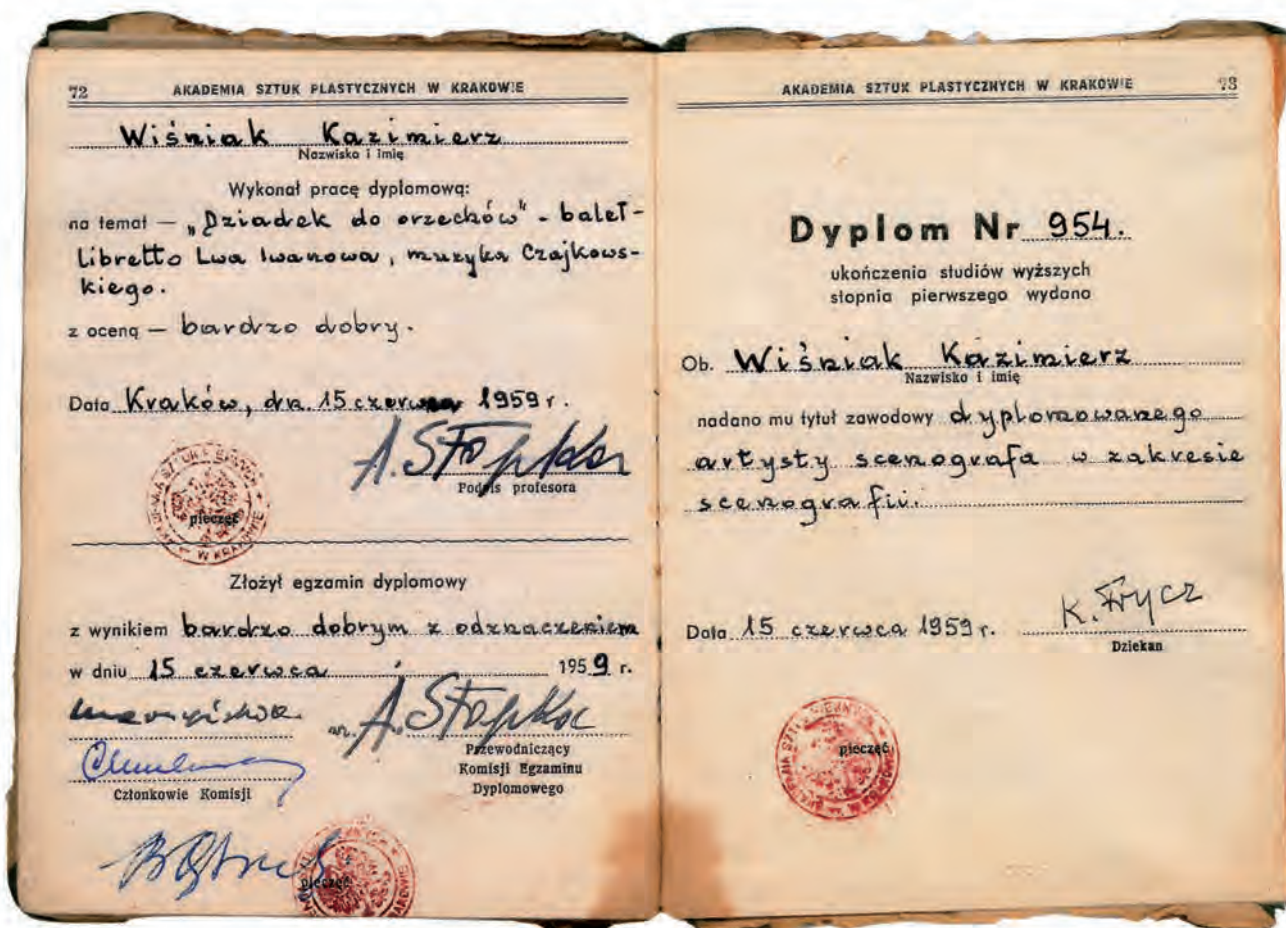 72 AKADEMIA SZTUK PLASTYCZNYCH W KRAKOWIE
Wiśniak Kazimierz
Nazwisko i imię
Wykonał pracę dyplomową:
na temat — „Dziadek do orzechów" - balet -
libretto Lwa Iwanowa, muzyka Czajkows-
kiego.
z oceną — bardzo dobry.
Data Kraków, dn. 15 czerwca 1959 r.
A. Stopka
Podpis profesora
pieczęć
W KRAKOWIE
Złożył egzamin dyplomowy
z wynikiem bardzo dobrym z odznaczeniem
w dniu 15 czerwca 1959 r.
A. Stopka
Przewodniczący
Komisji Egzaminu
Dyplomowego
Członkowie Komisji
pieczęć
AKADEMIA SZTUK PLASTYCZNYCH W KRAKOWIE 73
Dyplom Nr 954.
ukończenia studiów wyższych
stopnia pierwszego wydano
Ob. Wiśniak Kazimierz
Nazwisko i imię
nadano mu tytuł zawodowy dyplomowanego
artysty scenografa w zakresie
scenografii.
Data 15 czerwca 1959 r.
K. Frycz
Dziekan
pieczęć